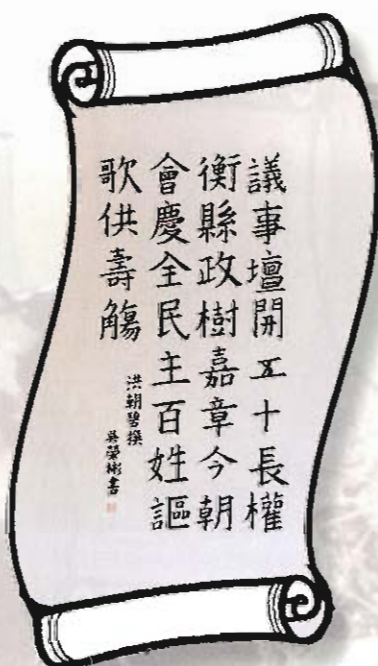 議事壇開五十長權
衡縣政樹嘉章今朝
會慶全民主百姓謳
歌供壽觴
洪朝碧撰
吳榮彬書